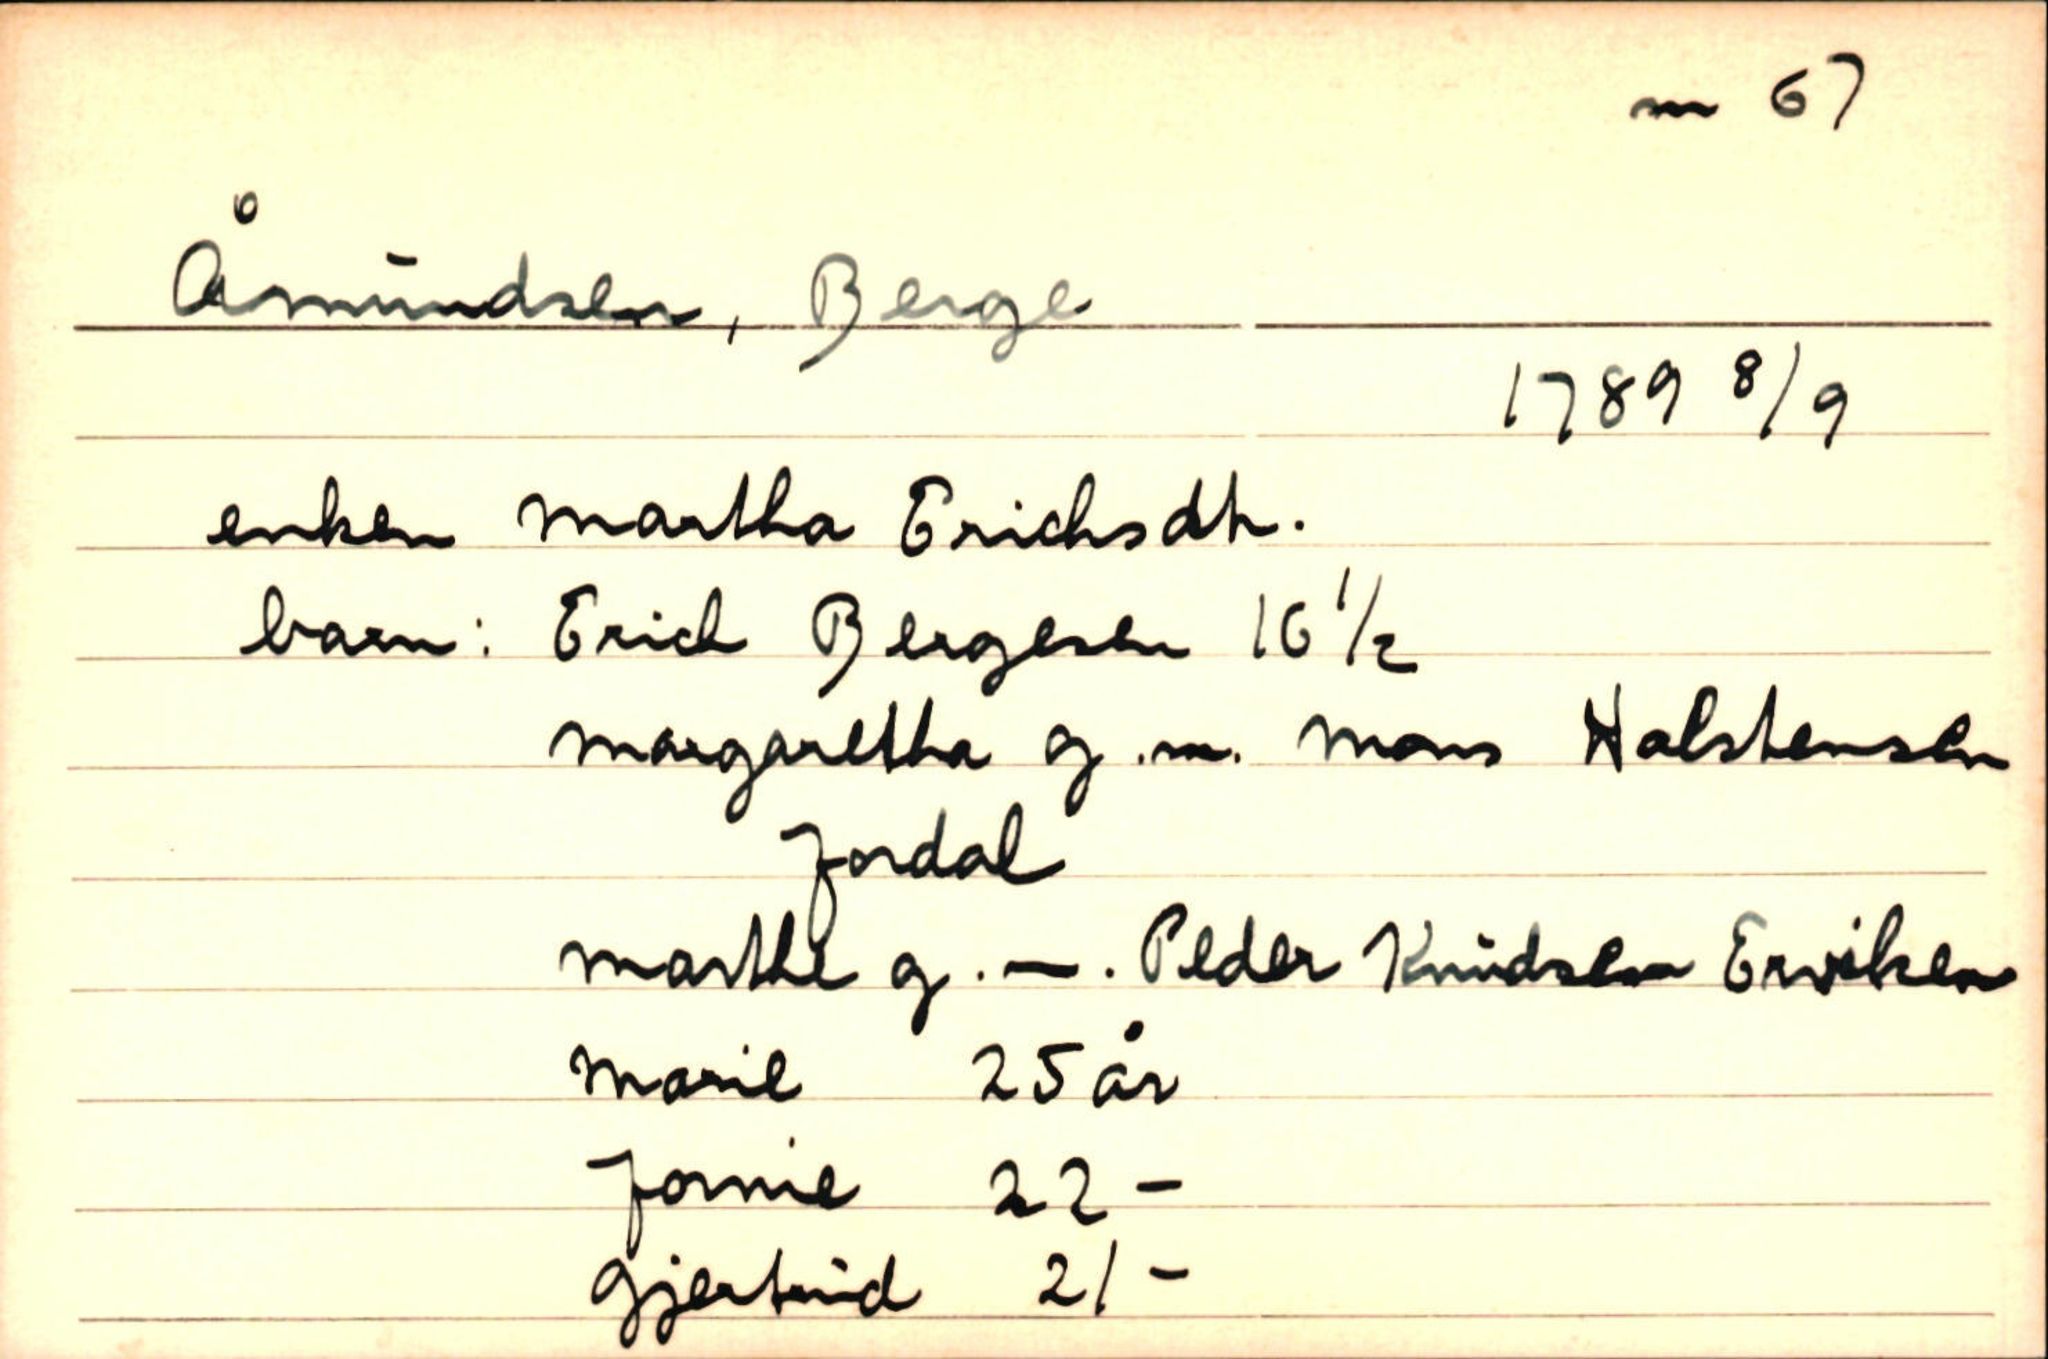 m 67
Åmundsen, Berge
1789 8/9
enken Martha Erichsdtr.
barn: Erich Bergesen 16 1/2
Margaretha g.m. Mons Halstensen
Jordal
Marthe g. — . Peder Knudsen Erviken
Marie 25 år
Jornie 22 -
Gjertrud 21 -